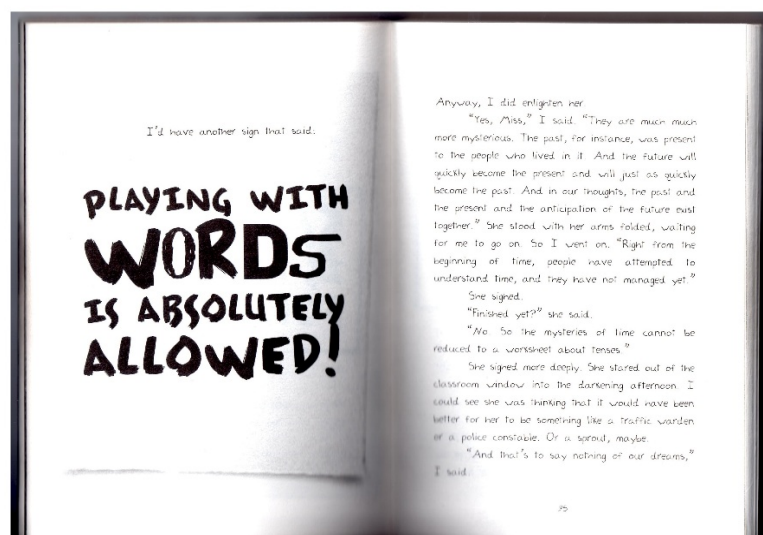 I'd have another sign that said:
PLAYING WITH
WORDS
IS ABSOLUTELY
ALLOWED!
Anyway, I did enlighten her.
"Yes, Miss," I said. "They are much much
more mysterious. The past, for instance, was present
to the people who lived in it. And the future will
quickly become the present and will just as quickly
become the past. And in our thoughts, the past and
the present and the anticipation of the future exist
together." She stood with her arms folded, waiting
for me to go on. So I went on. "Right from the
beginning of time, people have attempted to
understand time, and they have not managed yet."
She sighed.
"Finished yet?" she said.
"No. So the mysteries of time cannot be
reduced to a worksheet about tenses."
She sighed more deeply. She stared out of the
classroom window into the darkening afternoon. I
could see she was thinking that it would have been
better for her to be something like a traffic warden
or a police constable. Or a sprout, maybe.
"And that's to say nothing of our dreams,"
I said.